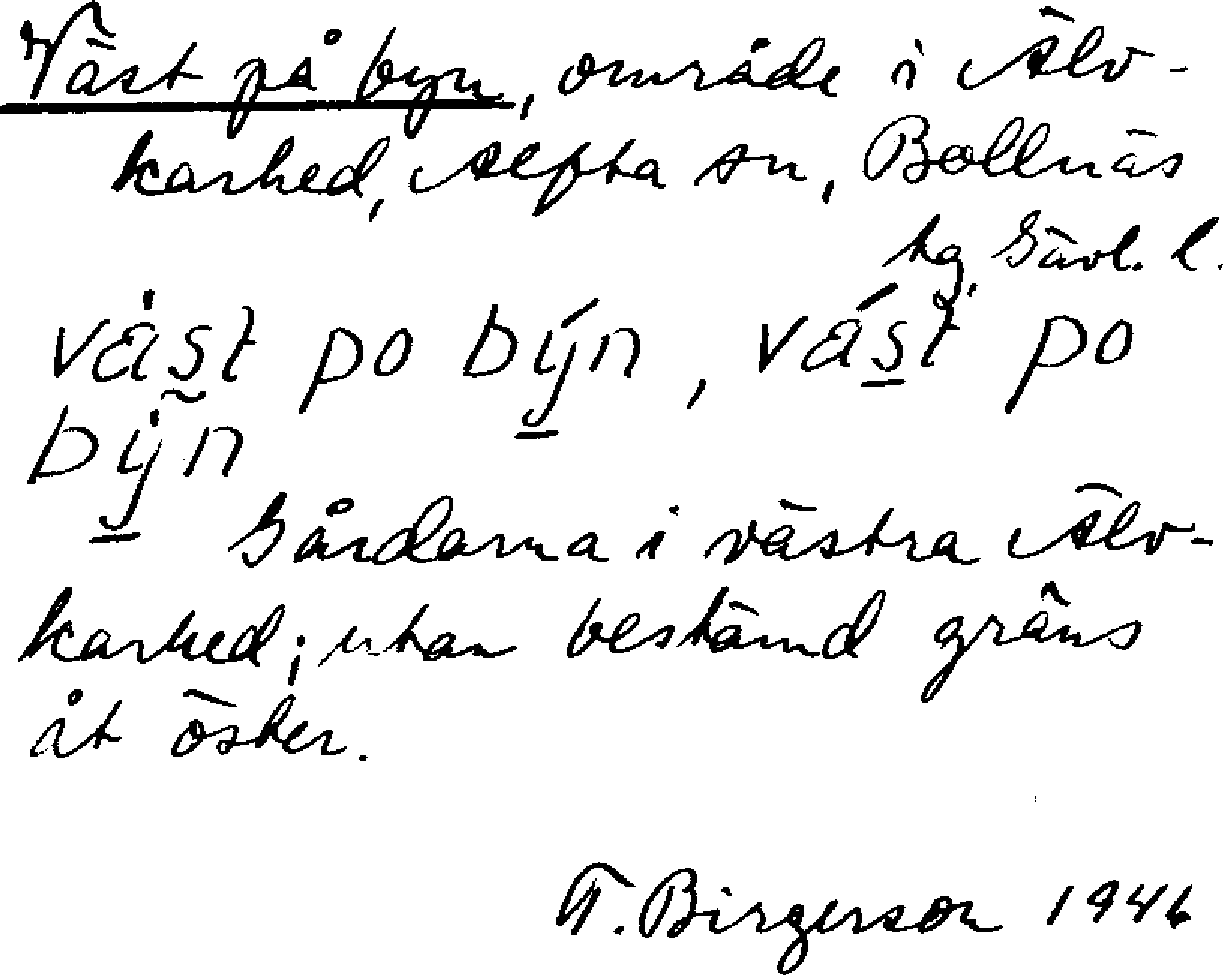 Väst på byn, område i Älv-
karhed, Alfta sn, Bollnäs
tg, Gävl. l.
väst po býn, vást po
bẏn
Gårdarna i västra Älv-
karhed; utan bestämd gräns
åt öster.
T. Birgerson 1946